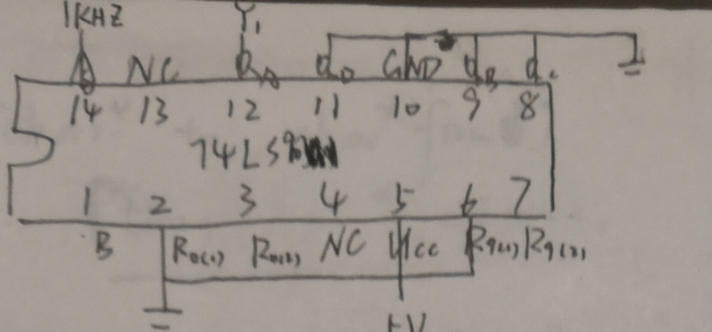 1KHZ Y₁
A NC QA QD GND QB QC
14 13 12 11 10 9 8
74LS90
1 2 3 4 5 6 7
B R0(1) R0(2) NC Vcc R9(1) R9(2)